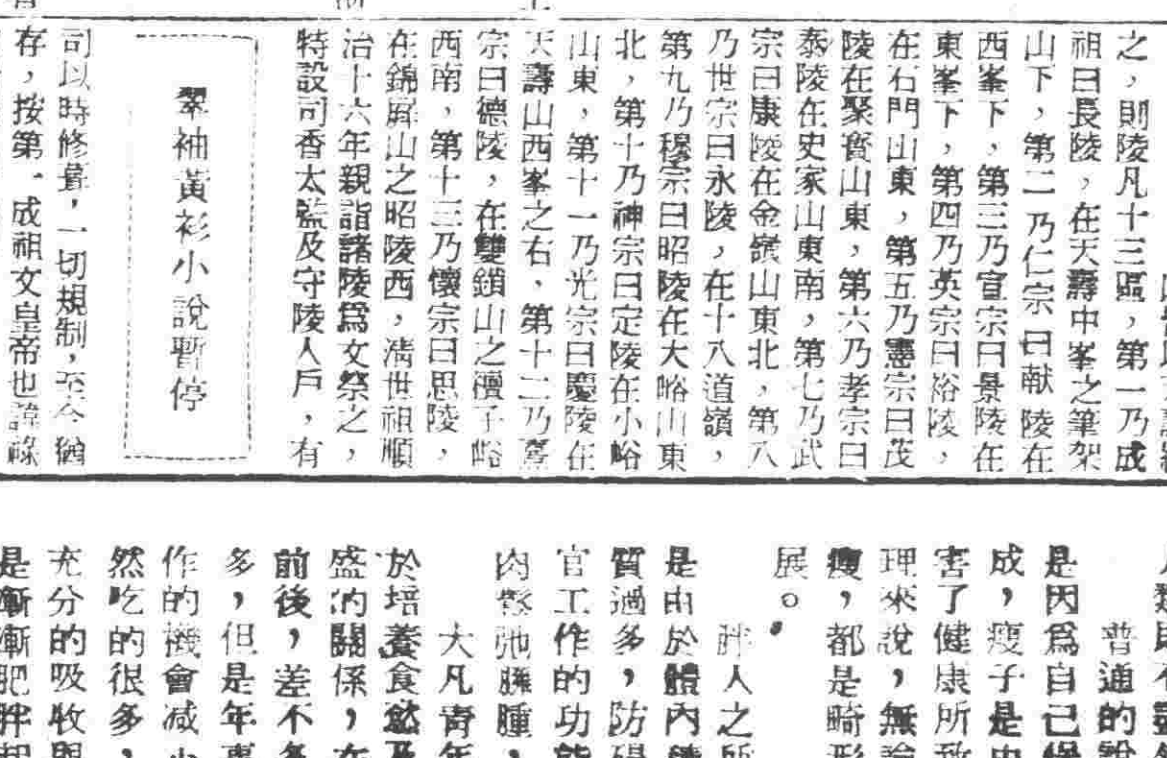 之，則陵凡十三區，第一乃成
祖曰長陵，在天壽中峯之筆架
山下，第二乃仁宗曰献陵在
西峯下，第三乃宣宗曰景陵在
東峯下，第四乃英宗曰裕陵，
在石門山東，第五乃憲宗曰茂
陵在聚寳山東，第六乃孝宗曰
泰陵在史家山東南，第七乃武
宗曰康陵在金嶺山東北，第八
乃世宗曰永陵，在十八道嶺，
第九乃穆宗曰昭陵在大峪山東
北，第十乃神宗曰定陵在小峪
山東，第十一乃光宗曰慶陵在
天壽山西峯之右，第十二乃熹
宗曰德陵，在雙鎖山之檀子峪
西南，第十三乃懷宗曰思陵，
在錦屏山之昭陵西，淸世祖順
治十六年親詣諸陵爲文祭之，
特設司香太監及守陵人戶，有
翠袖黃衫小說暫停
司以時修葺，一切規制，至今猶
存，按第一成祖文皇帝也諱
普通的說
是因爲自己
成，瘦子是由
害了健康所致
理來說，無論
瘦，都是畸形
展。
胖人之所
是由於體內
質過多，防碍
官工作的功能
肉弛腫，
大凡靑年
於培養食慾及
盛的關係，在
前後，差不多
多，但是年
作的機會减少
然吃的很多，
充分的吸收
是漸漸肥胖起